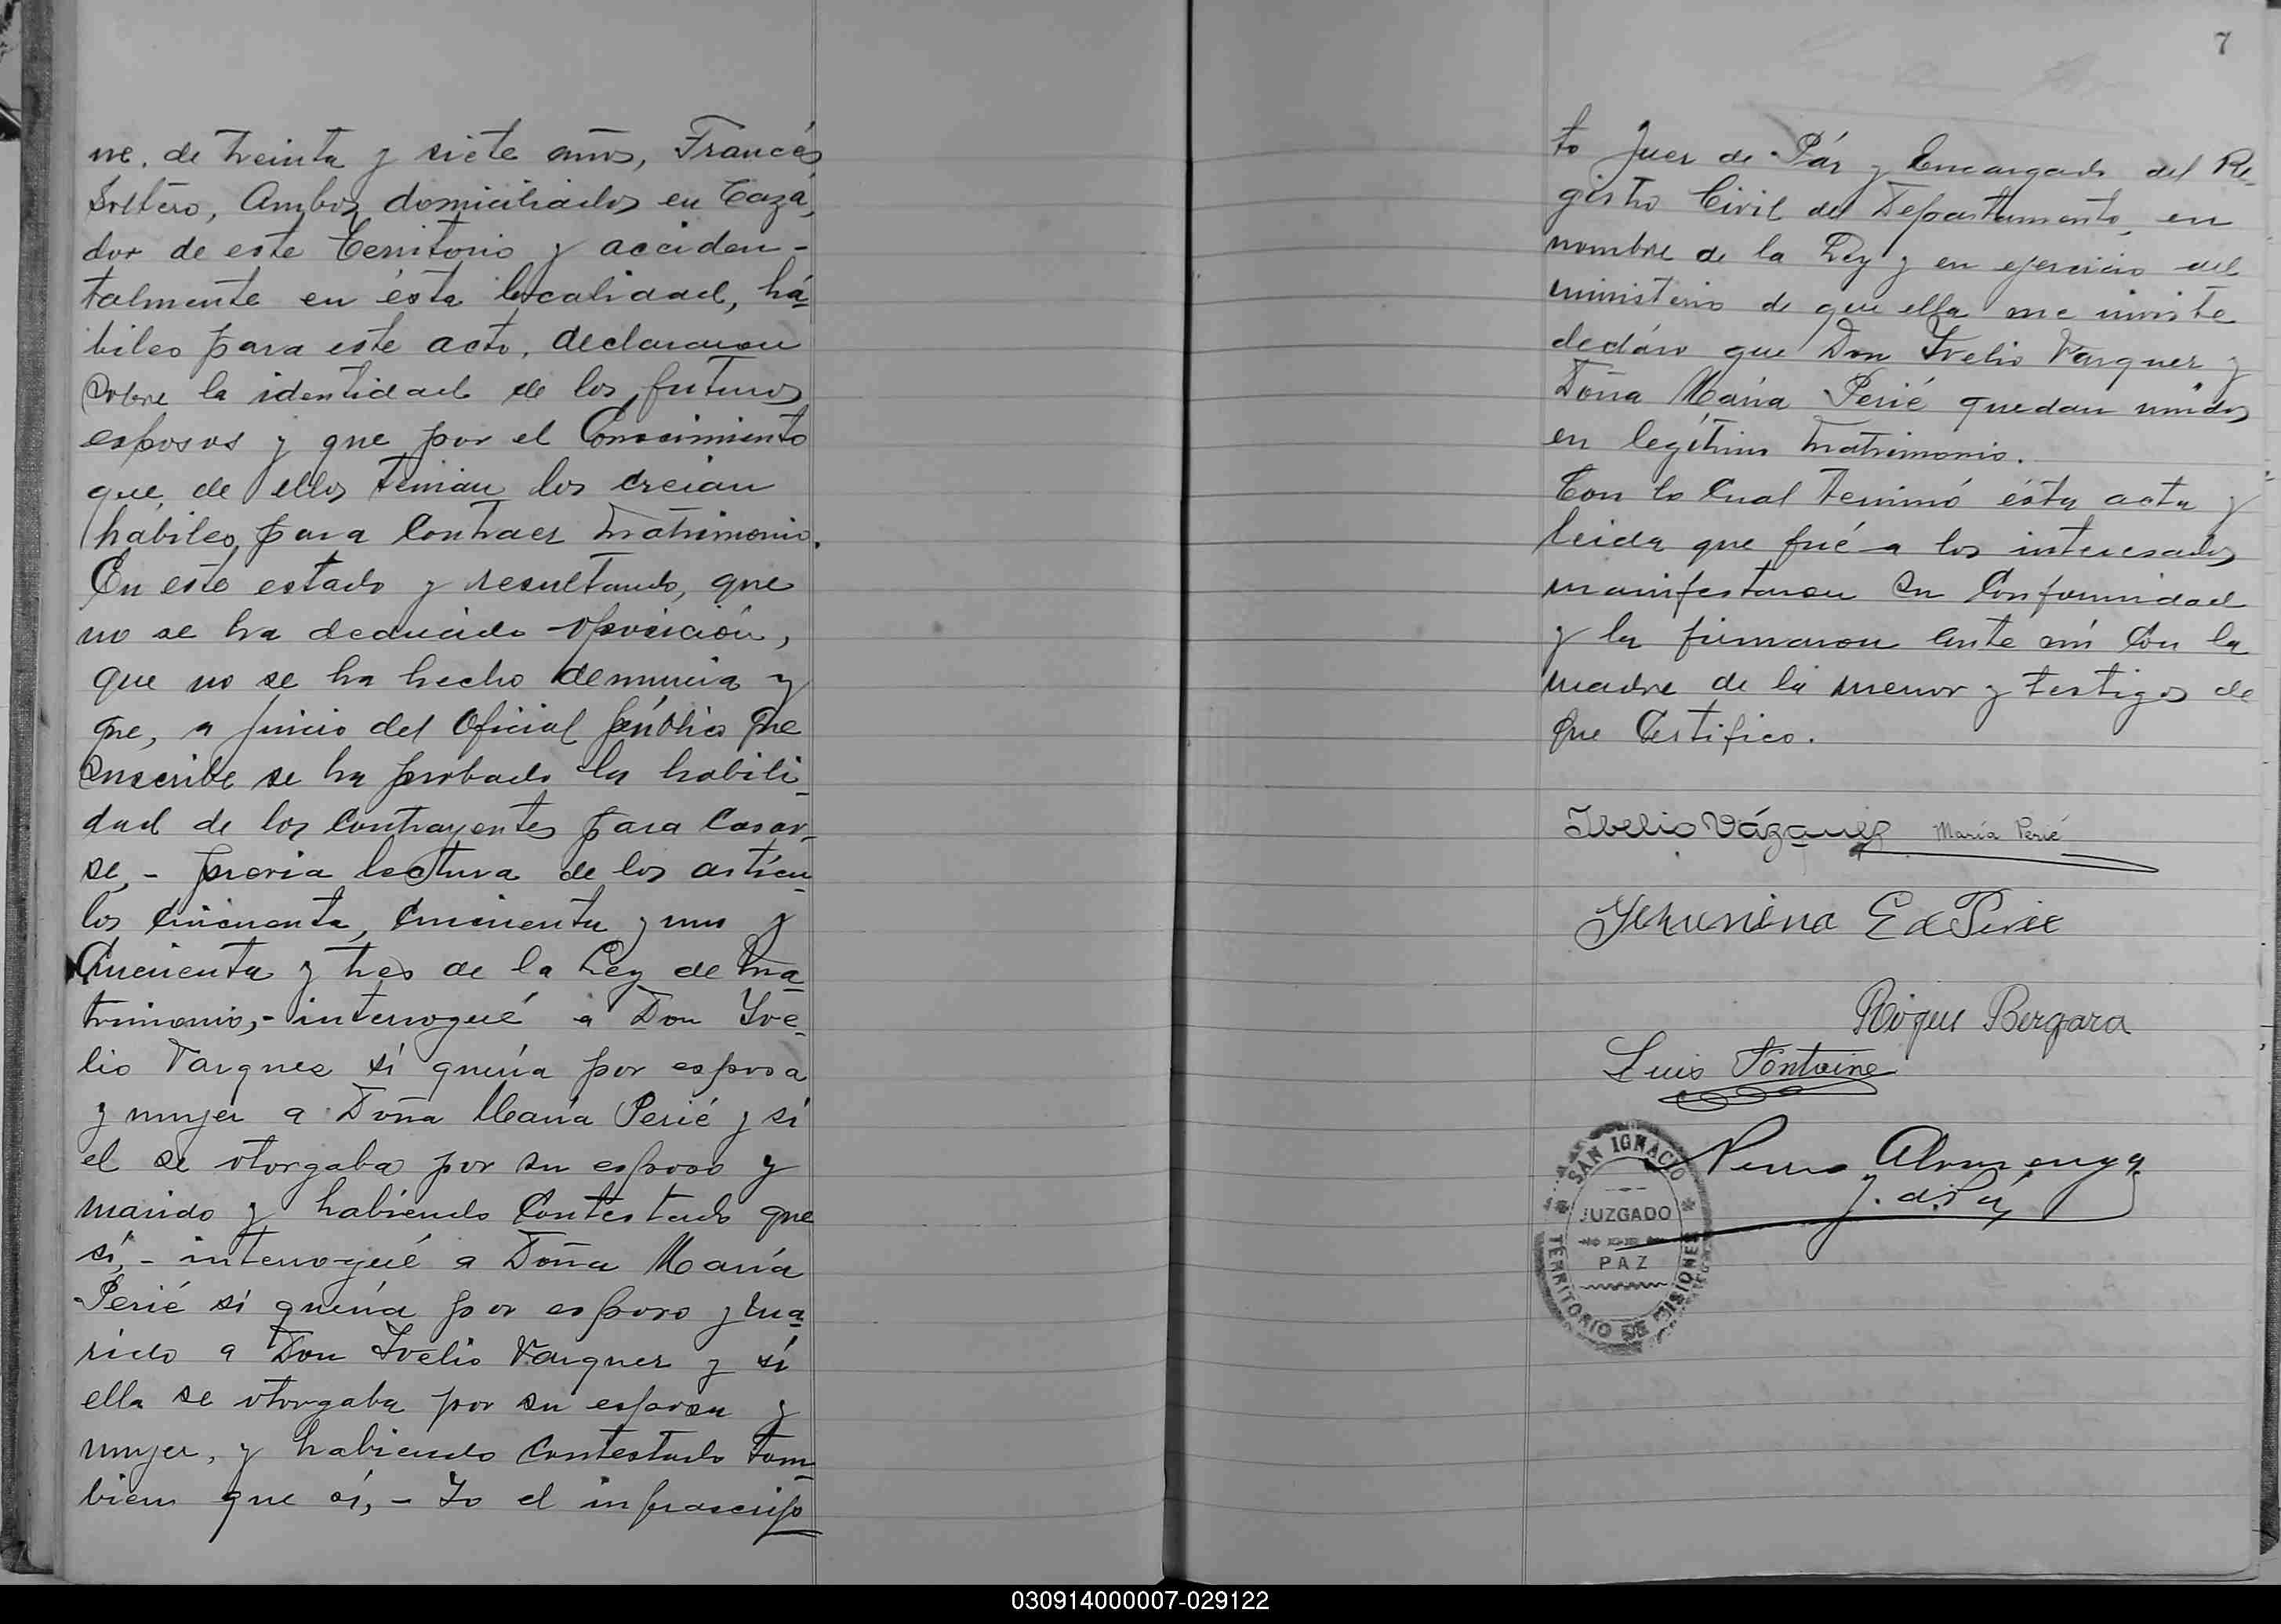 ne, de treinta y siete años, Francés
Soltero, Ambos domiciliados en Cazá,
dor de este Territorio y acciden-
talmente en ésta localidad, há-
biles para este acto, declararon
Sobre la identidad de los futuros
esposos y que por el Conocimiento
que, de ellos tenian los creian
habiles, para Contraer matrimonio.
En este estado y resultando, que
no se ha deducido oposición,
que no se ha hecho denuncia y
que, a juicio del Oficial público que
Suscribe se ha probado la habili-
dad de los Contrayentes para Casar-
se, - previa lectura de los artícu-
los Cincuenta, Cincuenta y uno y
Cincuenta y tres de la Ley de Ma-
trimonio, - interrogué a Don Ive-
lio Vasquez sí quería por esposa
y mujer a Doña María Perié y sí
el se otorgaba por su esposo y
marido y habiendo Contestado que
sí, - interrogué a Doña María
Perié sí quería por esposo y ma-
rido a Don Ivelio Vasquez y sí
ella se otorgaba por su esposa y
mujer, y habiendo Contestado tam-
bien que sí, - Yo el infrascrip-
7
to Juez de Páz y Encargado del Re-
gistro Civil del Departamento, en
nombre de la Ley y en ejercicio del
ministerio de que ella me inviste
decláro que Don Ivelio Vasquez y
Doña María Perié quedan unidos
en legítimo matrimonio.
Con lo Cual terminó ésta acta y
leida que fué a los interesados
manifestaron Su Conformidad
y la firmaron Ante mí Con la
madre de la menor y testigos de
que Certifico.
Ibelio Vázquez María Perié
E de Perié
Roque Bergara
Luis Fontaine
J. de Páz
SAN IGNACIO
JUZGADO
PAZ
TERRITORIO DE MISIONES
030914000007-029122